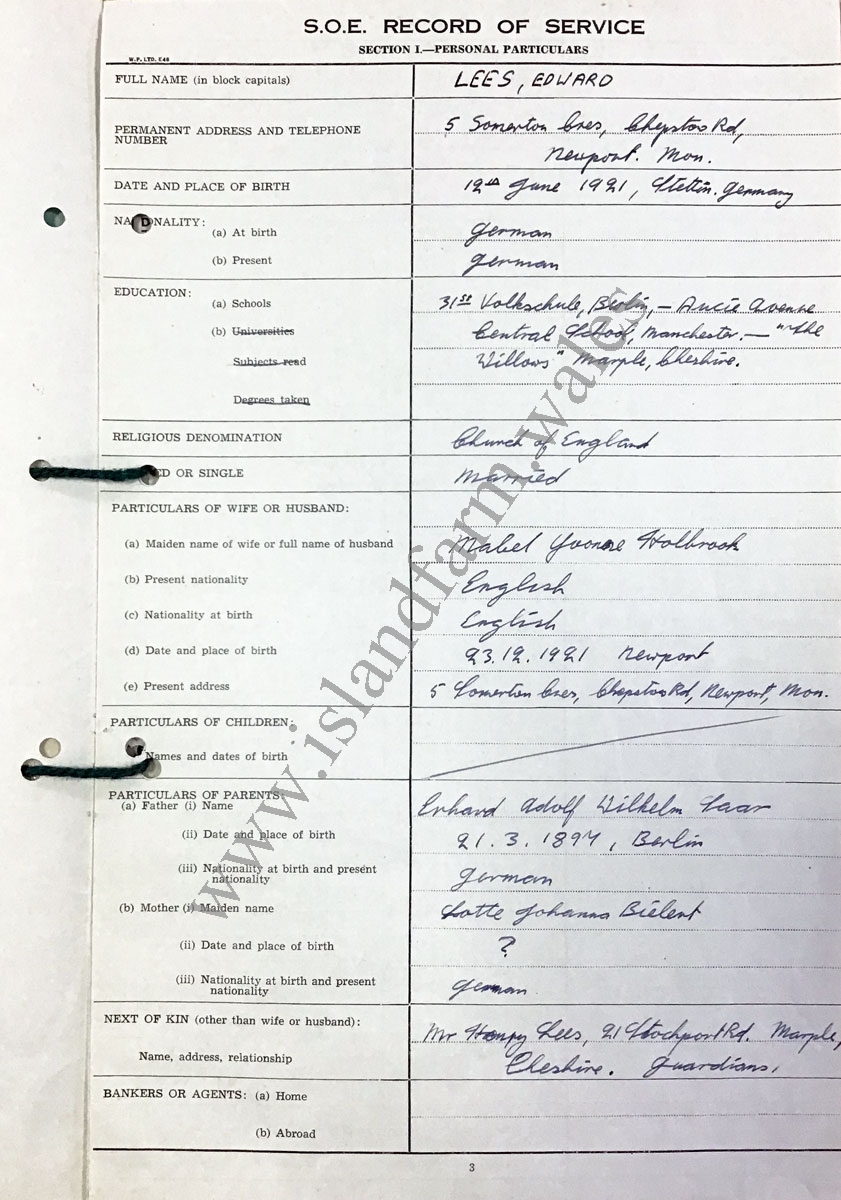 S.O.E. RECORD OF SERVICE
SECTION I.—PERSONAL PARTICULARS
W.P. LTD. E46
FULL NAME (in block capitals) LEES, EDWARD
PERMANENT ADDRESS AND TELEPHONE NUMBER 5 Somerton Cres, Chepstow Rd,
Newport. Mon.
DATE AND PLACE OF BIRTH 12th June 1921, Stettin. Germany
NA ONALITY:
(a) At birth German
(b) Present German
EDUCATION:
(a) Schools 31st Volkschule, Berlin, — Ducie Avenue
(b) Universities Central School, Manchester. — "The
Subjects read Willows" Marple, Cheshire.
Degrees taken
RELIGIOUS DENOMINATION Church of England
ED OR SINGLE Married
PARTICULARS OF WIFE OR HUSBAND:
(a) Maiden name of wife or full name of husband Mabel Yvonne Holbrook
(b) Present nationality English
(c) Nationality at birth English
(d) Date and place of birth 23.12.1921 Newport
(e) Present address 5 Somerton Cres, Chepstow Rd, Newport, Mon.
PARTICULARS OF CHILDREN:
Names and dates of birth
PARTICULARS OF PARENTS:
(a) Father (i) Name Erhard Adolf Wilhelm Saar
(ii) Date and place of birth 21.3.1897, Berlin
(iii) Nationality at birth and present nationality German
(b) Mother (i) Maiden name Lotte Johanna
(ii) Date and place of birth ?
(iii) Nationality at birth and present nationality German
NEXT OF KIN (other than wife or husband): Mr Lees, 21 Stockport Rd. Marple,
Name, address, relationship Cheshire. Guardians.
BANKERS OR AGENTS: (a) Home
(b) Abroad
3
www.islandfarm.wales